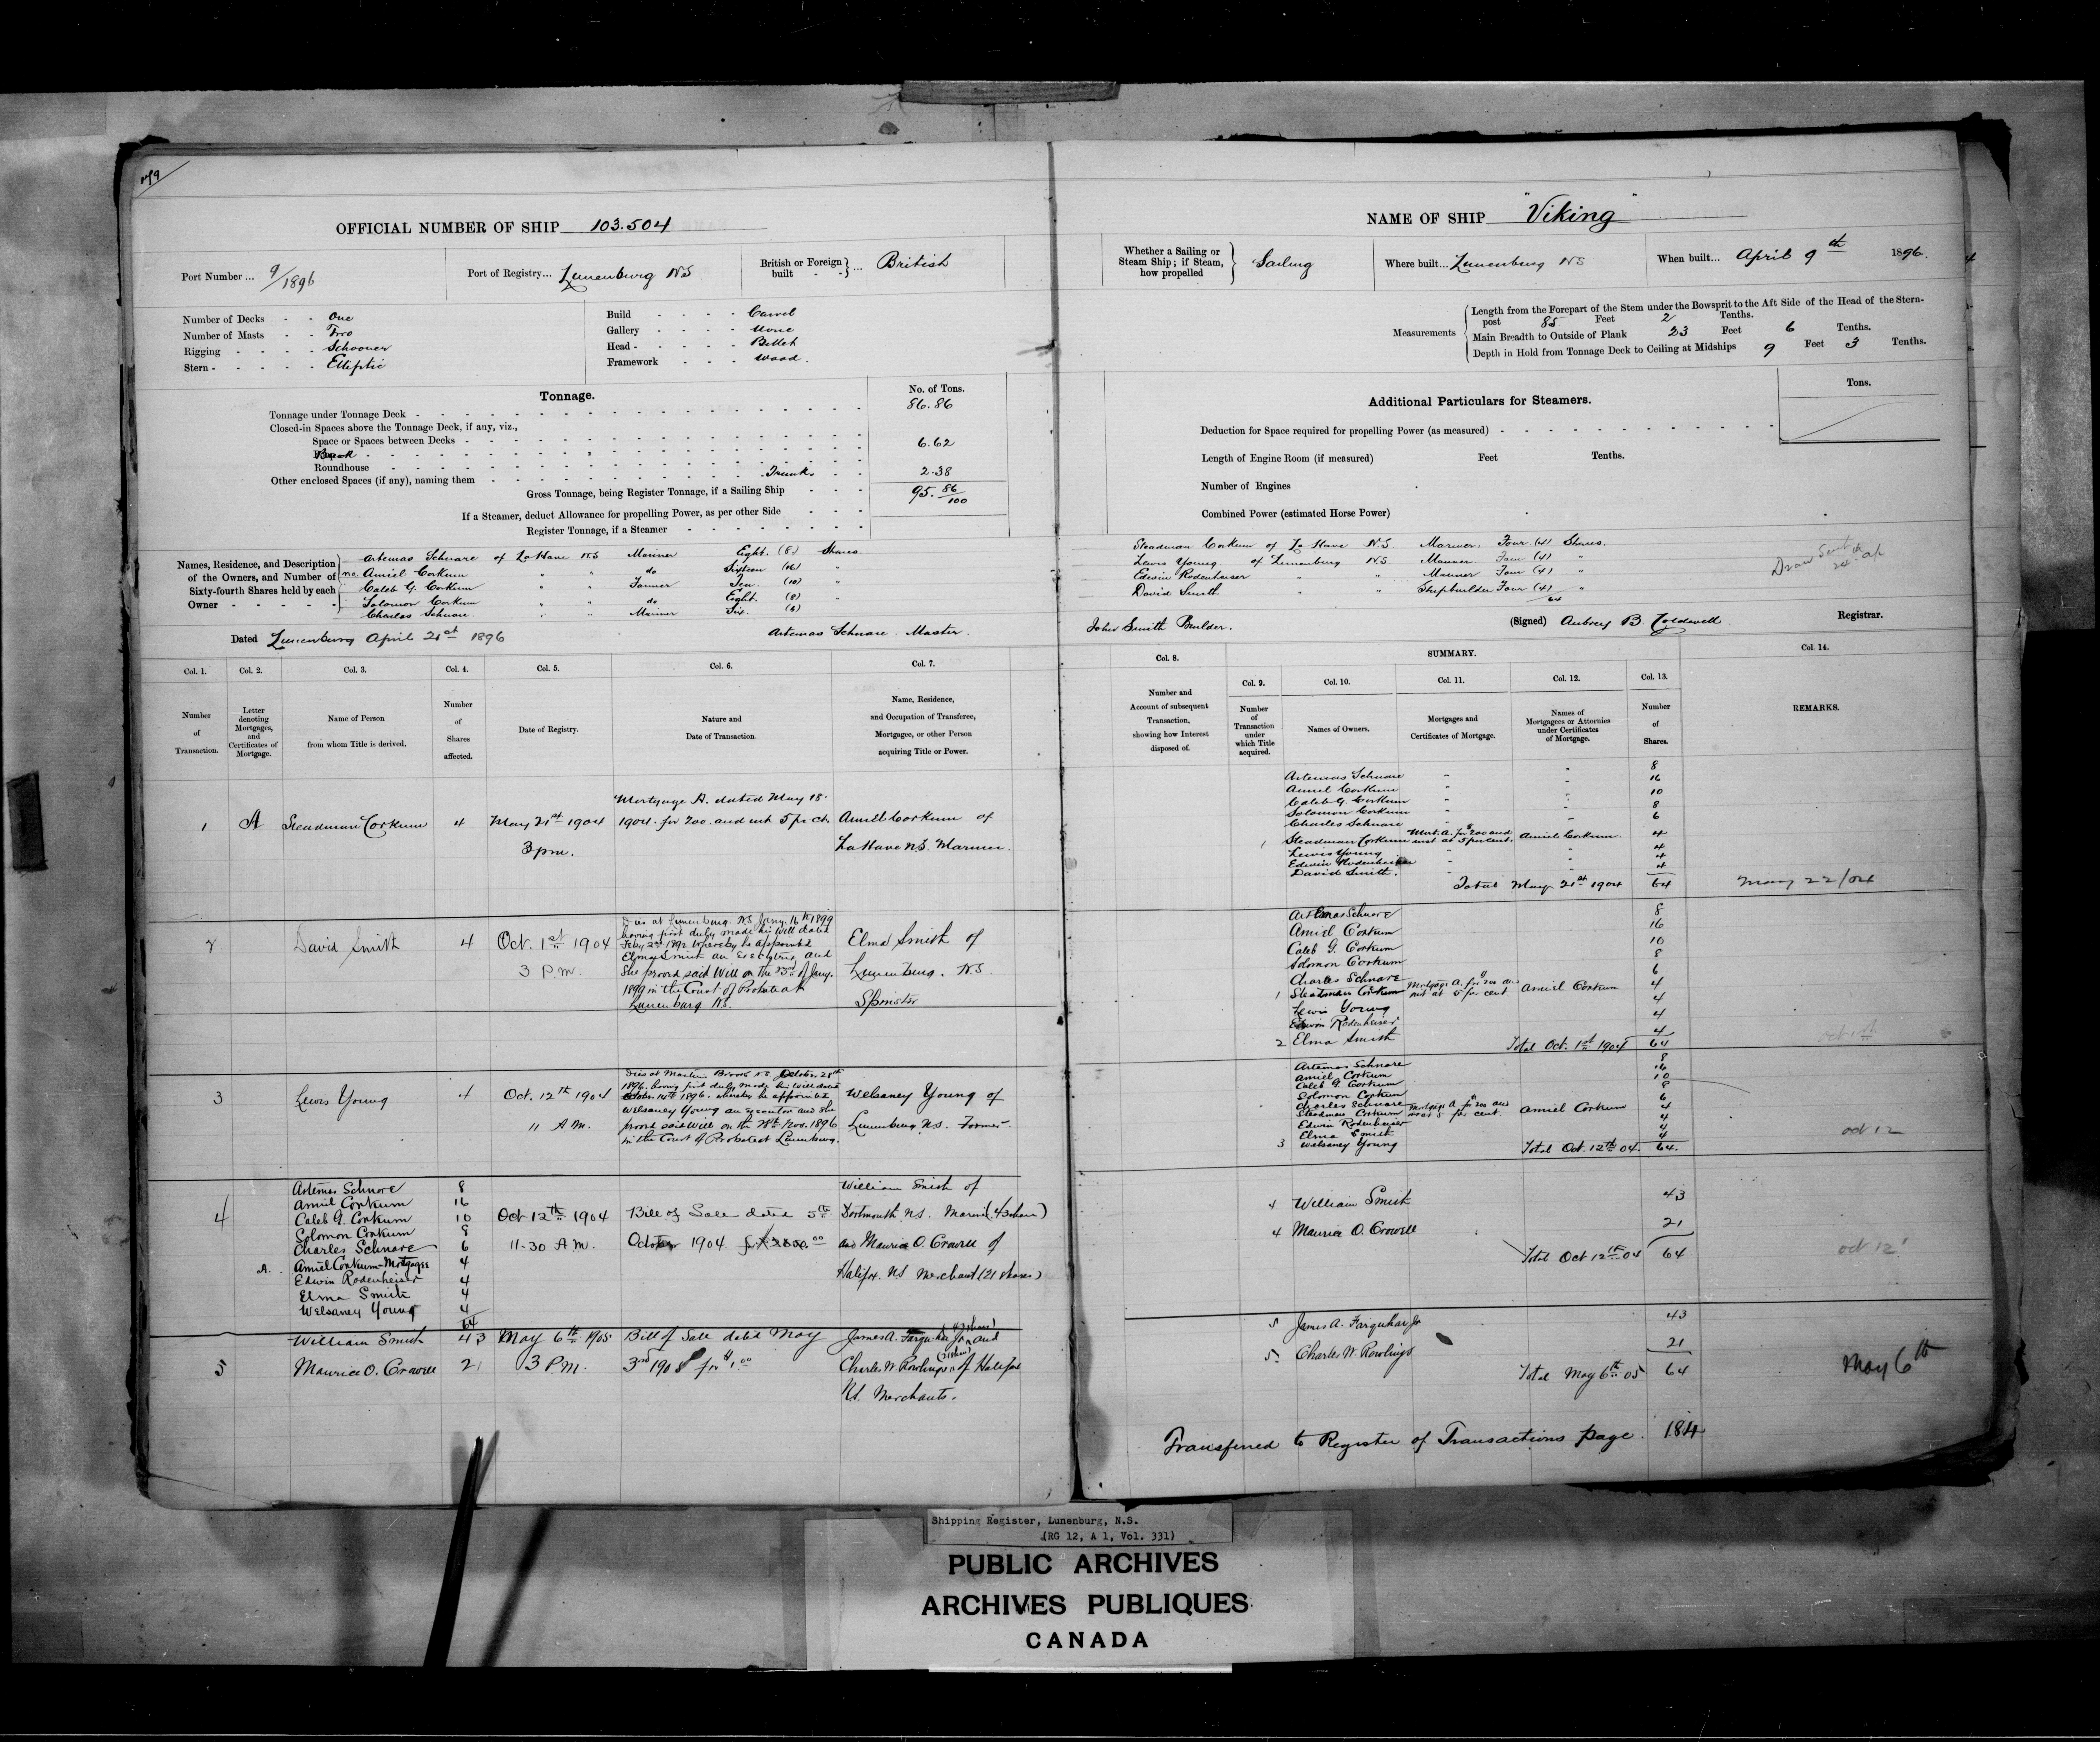 179
OFFICIAL NUMBER OF SHIP 103.504
Port Number ... 9/1896
Port of Registry... Lunenburg N S
British or Foreign built - - } ... British
Number of Decks - - One
Number of Masts - - Two
Rigging - - - - Schooner
Stern - - - - - Elliptic
Build - - - - Carvel
Gallery - - - - None
Head - - - - -
Framework - - - Wood.
Tonnage.
No. of Tons.
Tonnage under Tonnage Deck - 86.86
Closed-in Spaces above the Tonnage Deck, if any, viz.,
Space or Spaces between Decks -
Break - 6.62
Roundhouse -
Other enclosed Spaces (if any), naming them - Trunk - 2.38
Gross Tonnage, being Register Tonnage, if a Sailing Ship - - - 95.86/100
If a Steamer, deduct Allowance for propelling Power, as per other Side - - -
Register Tonnage, if a Steamer -
Names, Residence, and Description of the Owners, and Number of Sixty-fourth Shares held by each Owner - - - - -
Artemas Schnare of LaHave N S Mariner Eight. (8) Shares
Amiel Corkum " " do Sixteen (16) "
Caleb G. Corkum " " Farmer Ten (10) "
Solomon Corkum " " do Eight. (8) "
Charles Schnare " " Mariner Six. (6)
Dated Lunenburg April 21st 1896 Artemas Schnare Master.
Col. 1. Col. 2. Col. 3. Col. 4. Col. 5. Col. 6. Col. 7.
Number of Transaction.
Letter denoting Mortgages, and Certificates of Mortgage.
Name of Person from whom Title is derived.
Number of Shares affected.
Date of Registry.
Nature and Date of Transaction.
Name, Residence, and Occupation of Transferee, Mortgagee, or other Person acquiring Title or Power.
1 A Steadman Corkum 4 May 21st 1904 3 pm.
Mortgage A. dated May 18
1904. for 200. and int 5 pr ct.
Amiel Corkum of
LaHave N.S. Mariner.
2 David Smith 4 Oct. 1st 1904 3 P.M.
Dies at Lunenburg. N.S. Jany. 16th 1899
having first duly made his Will dated
Feby 2nd 1892 whereby he appointed
Elma Smith an executrix and
She proved said Will on the of Jany.
1899 in the Court of Probate at
Lunenburg N.S.
Elma Smith of
Lunenburg. N.S.
Spinster
3 Lewis Young 4 Oct. 12th 1904 11 A.M.
Dies at Martins Brook N.S. October 28th
1896. having first duly made his Will dated
October 14th 1896. whereby he appointed
Welsaney Young an executor and she
proved said Will on the Nov. 1896
in the Court of Probate at Lunenburg.
Welsaney Young of
Lunenburg N.S. Farmer
4 Artemas Schnare 8
Amiel Corkum 16
Caleb G. Corkum 10
Solomon Corkum 8
Charles Schnare 6
A. Amiel Corkum - Mortgagee 4
Edwin Rodenheiser 4
Elma Smith 4
Welsaney Young 4
64
Oct 12th 1904
11-30 A M.
Bill of Sale dated 5th
October 1904
William Smith of
Dartmouth N.S. Mariner (43 shares)
and Maurice O. Crowell of
Halifax. N.S Merchant (21 shares)
5 William Smith 43
Maurice O. Crowell 21
May 6th 1905
3 P.M.
Bill of Sale dated May
3rd 1905 for $1.00
James A. Farquhar Jr. (43 shares) and
Charles W. Rowlings (21 shares) of Halifax
N.S. Merchants.
NAME OF SHIP "Viking"
Whether a Sailing or Steam Ship; if Steam, how propelled } Sailing
Where built... Lunenburg N S
When built... April 9th 1896.
Measurements
Length from the Forepart of the Stem under the Bowsprit to the Aft Side of the Head of the Stern-
post 85 Feet 2 Tenths.
Main Breadth to Outside of Plank 23 Feet 6 Tenths.
Depth in Hold from Tonnage Deck to Ceiling at Midships 9 Feet 3 Tenths.
Additional Particulars for Steamers.
Tons.
Deduction for Space required for propelling Power (as measured) -
Length of Engine Room (if measured) Feet Tenths.
Number of Engines
Combined Power (estimated Horse Power)
Steadman Corkum of La Have N.S. Mariner. Four (4) Shares.
Lewis Young of Lunenburg N.S. Mariner Four (4) "
Edwin Rodenheiser " " Mariner Four (4) "
David Smith " " Shipbuilder Four (4) "
64
John Smith Builder.
(Signed) Aubrey B. Coldwell Registrar.
Col. 8. SUMMARY. Col. 14.
Col. 9. Col. 10. Col. 11. Col. 12. Col. 13.
Number and Account of subsequent Transaction, showing how Interest disposed of.
Number of Transaction under which Title acquired.
Names of Owners.
Mortgages and Certificates of Mortgage.
Names of Mortgagees or Attornies under Certificates of Mortgage.
Number of Shares.
REMARKS.
Artemas Schnare - - 8
Amiel Corkum - - 16
Caleb G. Corkum - - 10
Solomon Corkum - - 8
Charles Schnare - - 6
1 Steadman Corkum Mort. A. for $200 and int at 5 per cent. Amiel Corkum. 4
Lewis Young - - 4
Edwin Rodenheiser - - 4
David Smith. 4
Total May 21st 1904 64
May 22/04
Artemas Schnare 8
Amiel Corkum 16
Caleb G. Corkum 10
Solomon Corkum 8
Charles Schnare 6
1 Steadman Corkum Mortgage A. for $200 and int at 5 per cent Amiel Corkum 4
Lewis Young 4
Edwin Rodenheiser 4
2 Elma Smith 4
Total Oct. 1st 1904 64
Oct 1st
Artemas Schnare 8
Amiel Corkum 16
Caleb G. Corkum 10
Solomon Corkum 8
Charles Schnare 6
Steadman Corkum Mortgage A for $200 and int at 5 per cent. Amiel Corkum 4
Edwin Rodenheiser 4
Elma Smith 4
3 Welsaney Young 4
Total Oct. 12th 04. 64.
oct 12
4 William Smith 43
4 Maurice O. Crowell 21
Total Oct 12th 04 64
oct 12
5 James A. Farquhar Jr 43
5. Charles W. Rowlings 21
Total May 6th 05 64
May 6th
Transferred to Register of Transactions page. 184
Shipping Register, Lunenburg, N.S.
(RG 12, A 1, Vol. 331)
PUBLIC ARCHIVES
ARCHIVES PUBLIQUES
CANADA